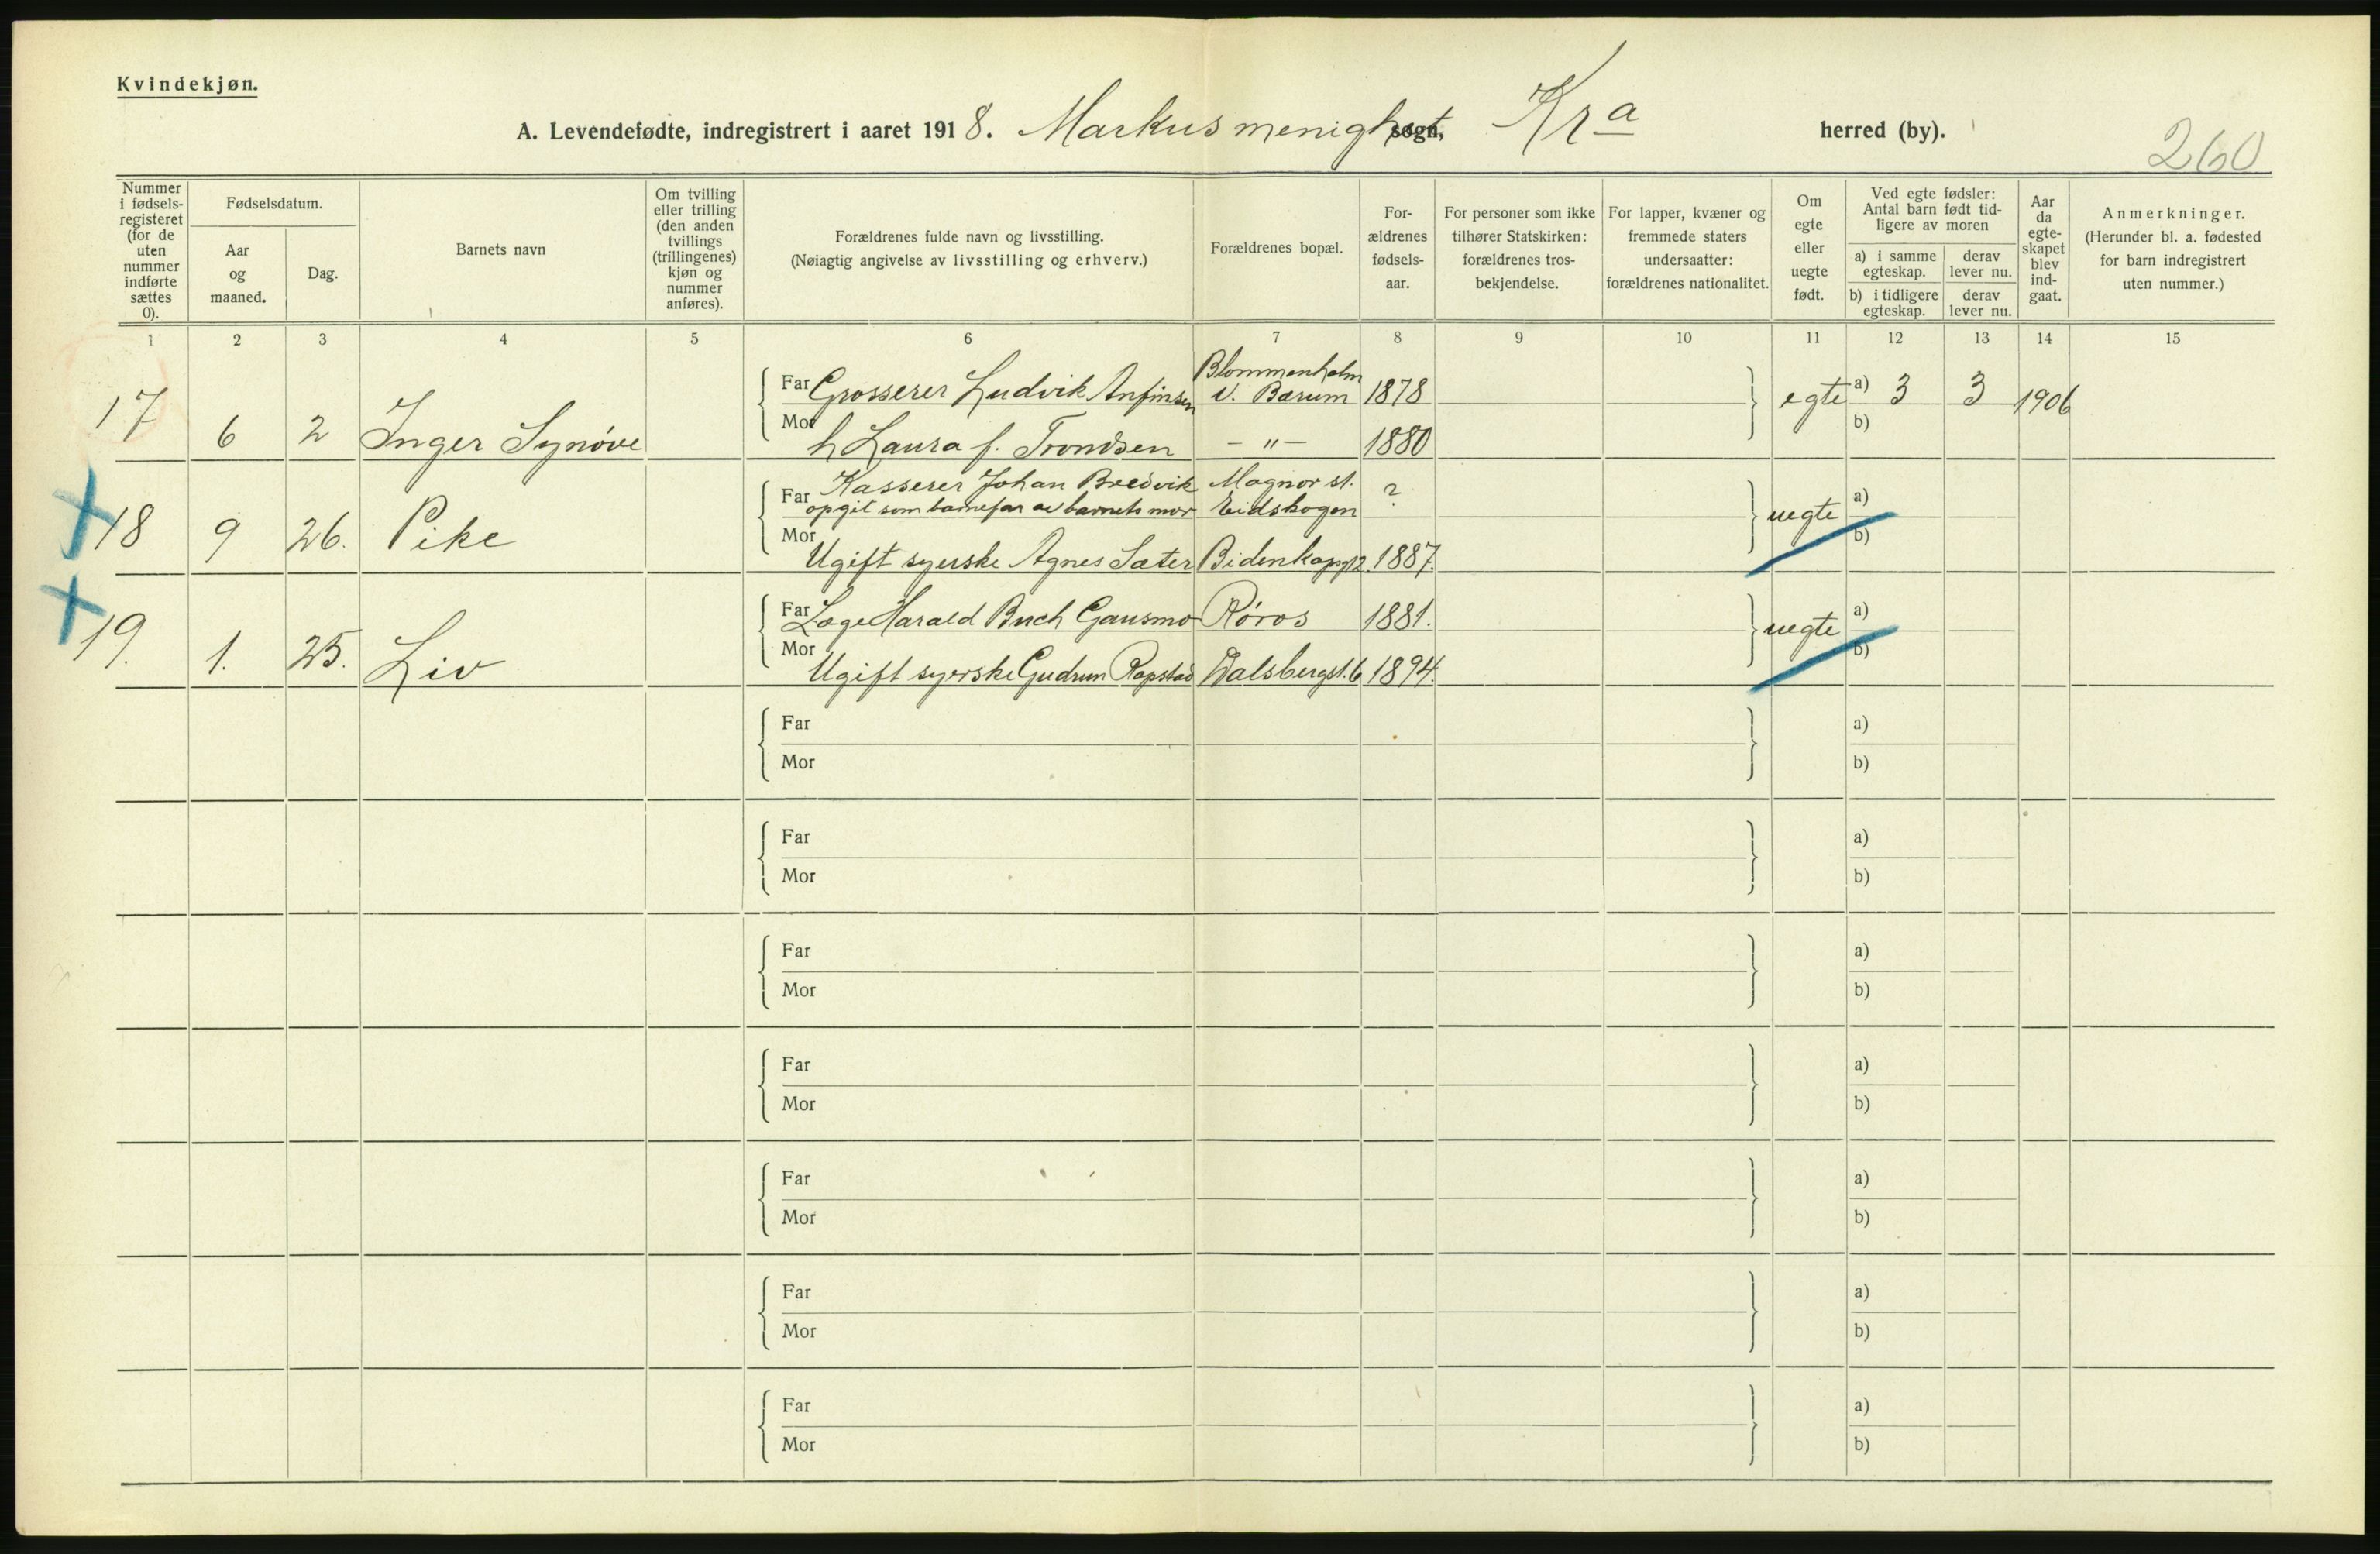 Kvindekjøn.
A. Levendefødte, indregistrert i aaret 1918. Markus menighet sogn, Kra herred (by).
260
Nummer i fødsels-registeret (for de uten nummer indførte sættes 0).
Fødselsdatum.
Aar og maaned.
Dag.
Barnets navn
Om tvilling eller trilling (den anden tvillings (trillingenes) kjøn og nummer anføres).
Forældrenes fulde navn og livsstilling.
(Nøiagtig angivelse av livsstilling og erhverv.)
Forældrenes bopæl.
For-ældrenes fødsels-aar.
For personer som ikke tilhører Statskirken: forældrenes tros-bekjendelse.
For lapper, kvæner og fremmede staters undersaatter: forældrenes nationalitet.
Om egte eller uegte født.
Ved egte fødsler: Antal barn født tid-ligere av moren
a) i samme egteskap.
derav lever nu.
b) i tidligere egteskap.
derav lever nu.
Aar da egte-skapet blev ind-gaat.
Anmerkninger.
(Herunder bl. a. fødested for barn indregistrert uten nummer.)
1 2 3 4 5 6 7 8 9 10 11 12 13 14 15
17 6 2 Inger Synöve
Far Grosserer Ludvik Anfinsen Blommenholm V. Bærum 1878 egte a) 3 3 1906
Mor h Laura f. Trondsen - " - 1880 b)
18 9 26. Pike
Far Kasserer Johan Bredvik Magnor st. ? uegte a)
opgit som barnefar av barnets mor Eidskogen
Mor Ugift syerske Agnes Sæter Bidenkapsgt 12. 1887. b)
19. 1. 25. Liv
Far Læge Harald Buch Gausmo Röros 1881. uegte a)
Mor Ugift syerske Gudrun Rapstad Dalsbergst. 6 1894. b)
Far a)
Mor b)
Far a)
Mor b)
Far a)
Mor b)
Far a)
Mor b)
Far a)
Mor b)
Far a)
Mor b)
Far a)
Mor b)